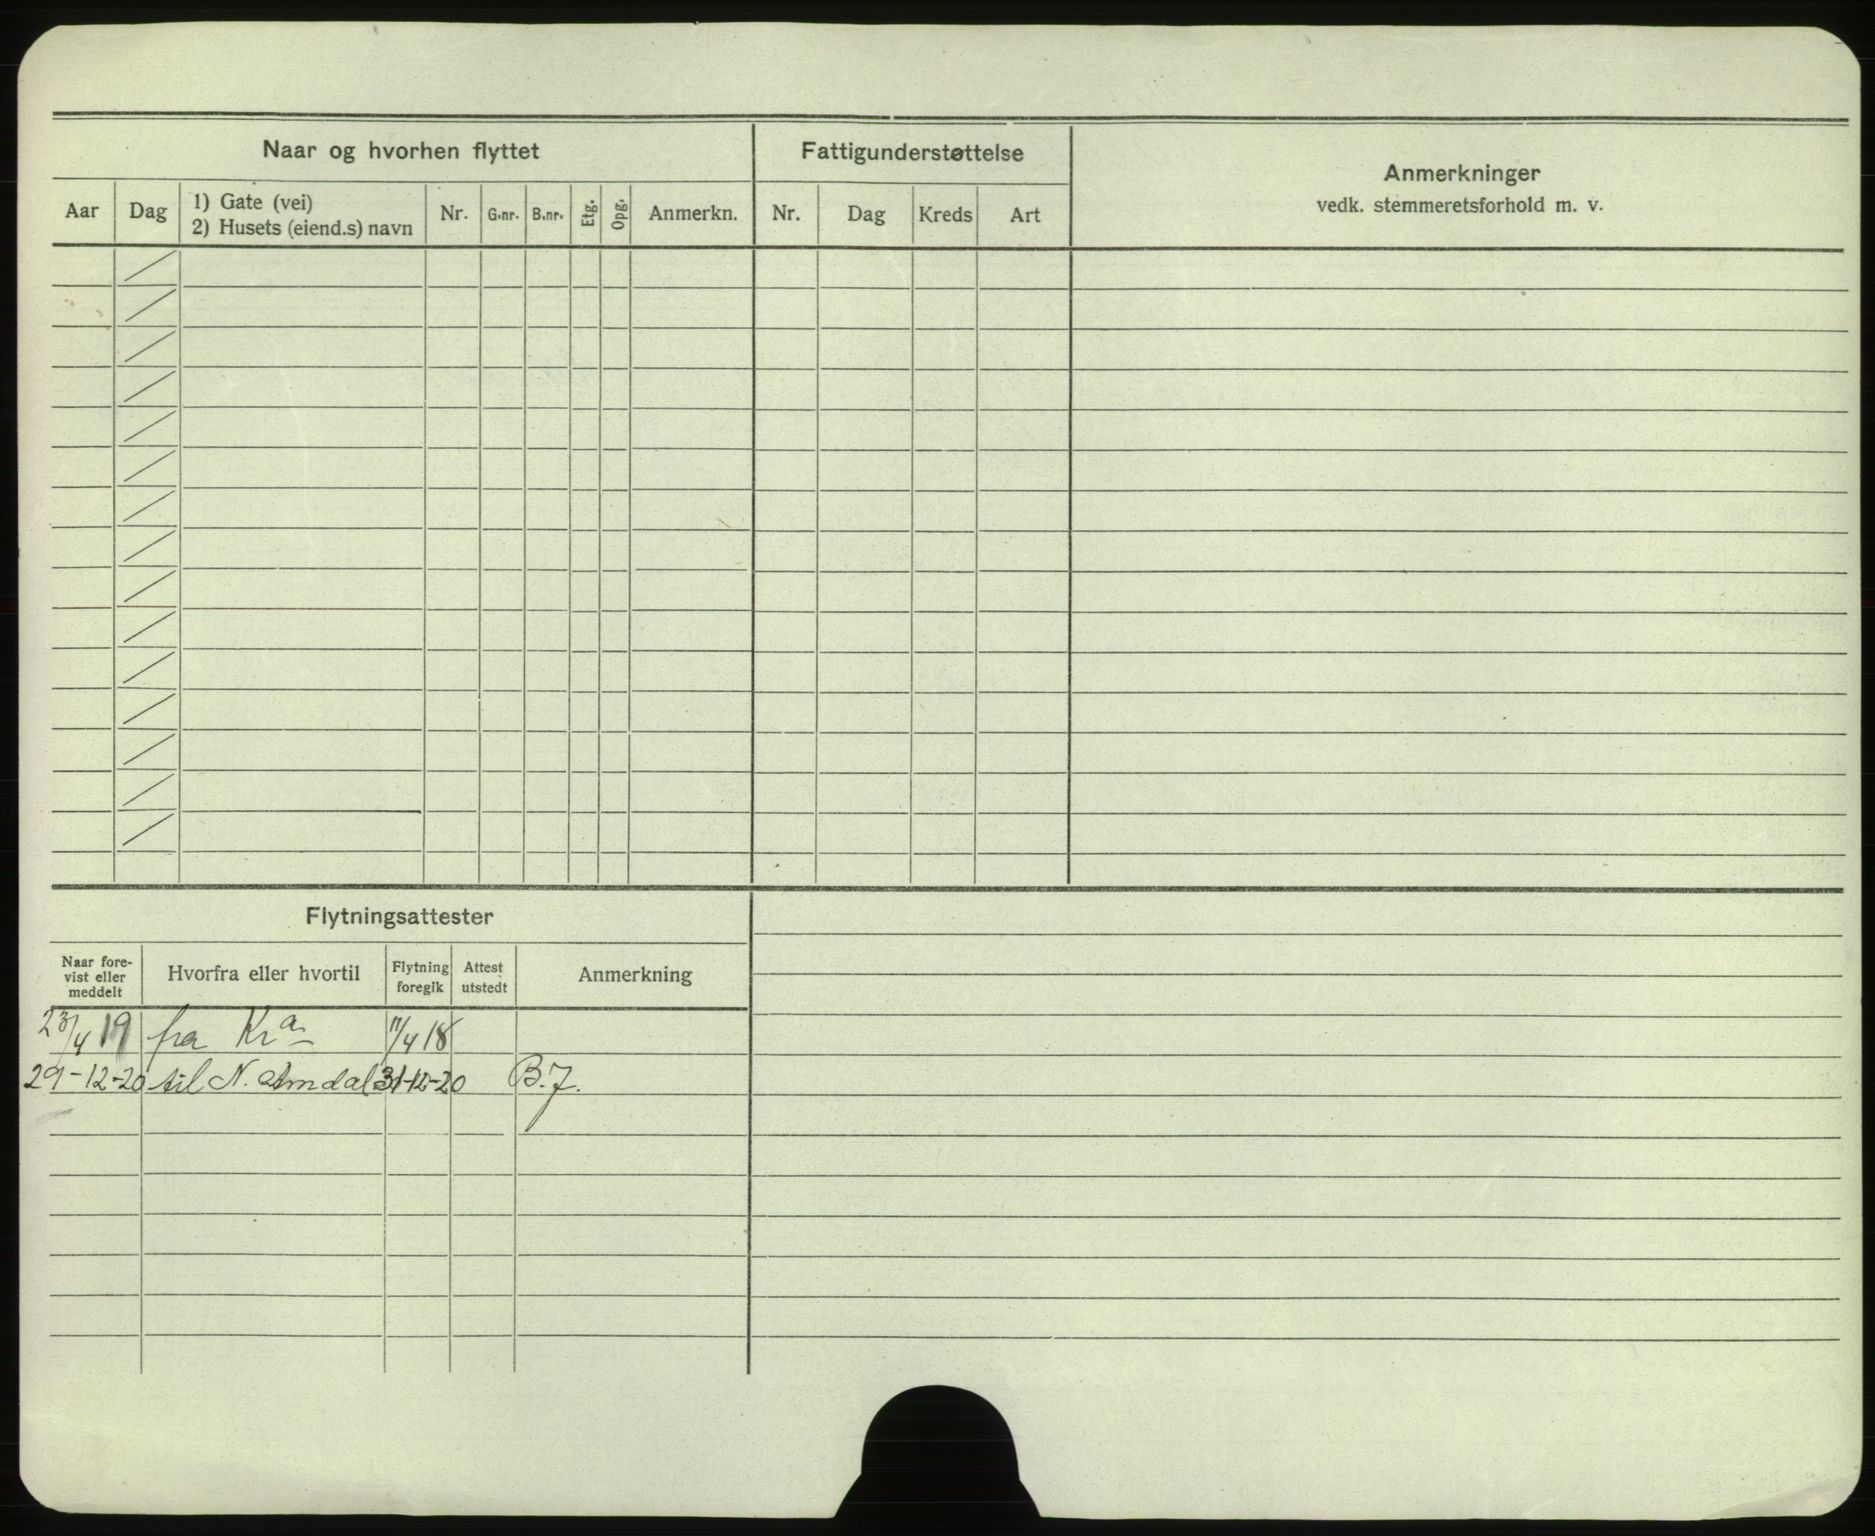 Naar og hvorhen flyttet
Fattigunderstøttelse
Anmerkninger
vedk. stemmeretsforhold m. v.
Aar
Dag
1) Gate (vei)
2) Husets (eiend.s) navn
Nr.
G.nr.
B.nr.
Etg.
Opg.
Anmerkn.
Nr.
Dag
Kreds
Art
Flytningsattester
Naar fore-
vist eller
meddelt
Hvorfra eller hvortil
Flytning
foregik
Attest
utstedt
Anmerkning
23/4 19 fra Kra 11/4 18
29-12-20 til N. Omdal 31-12-20 B.J.